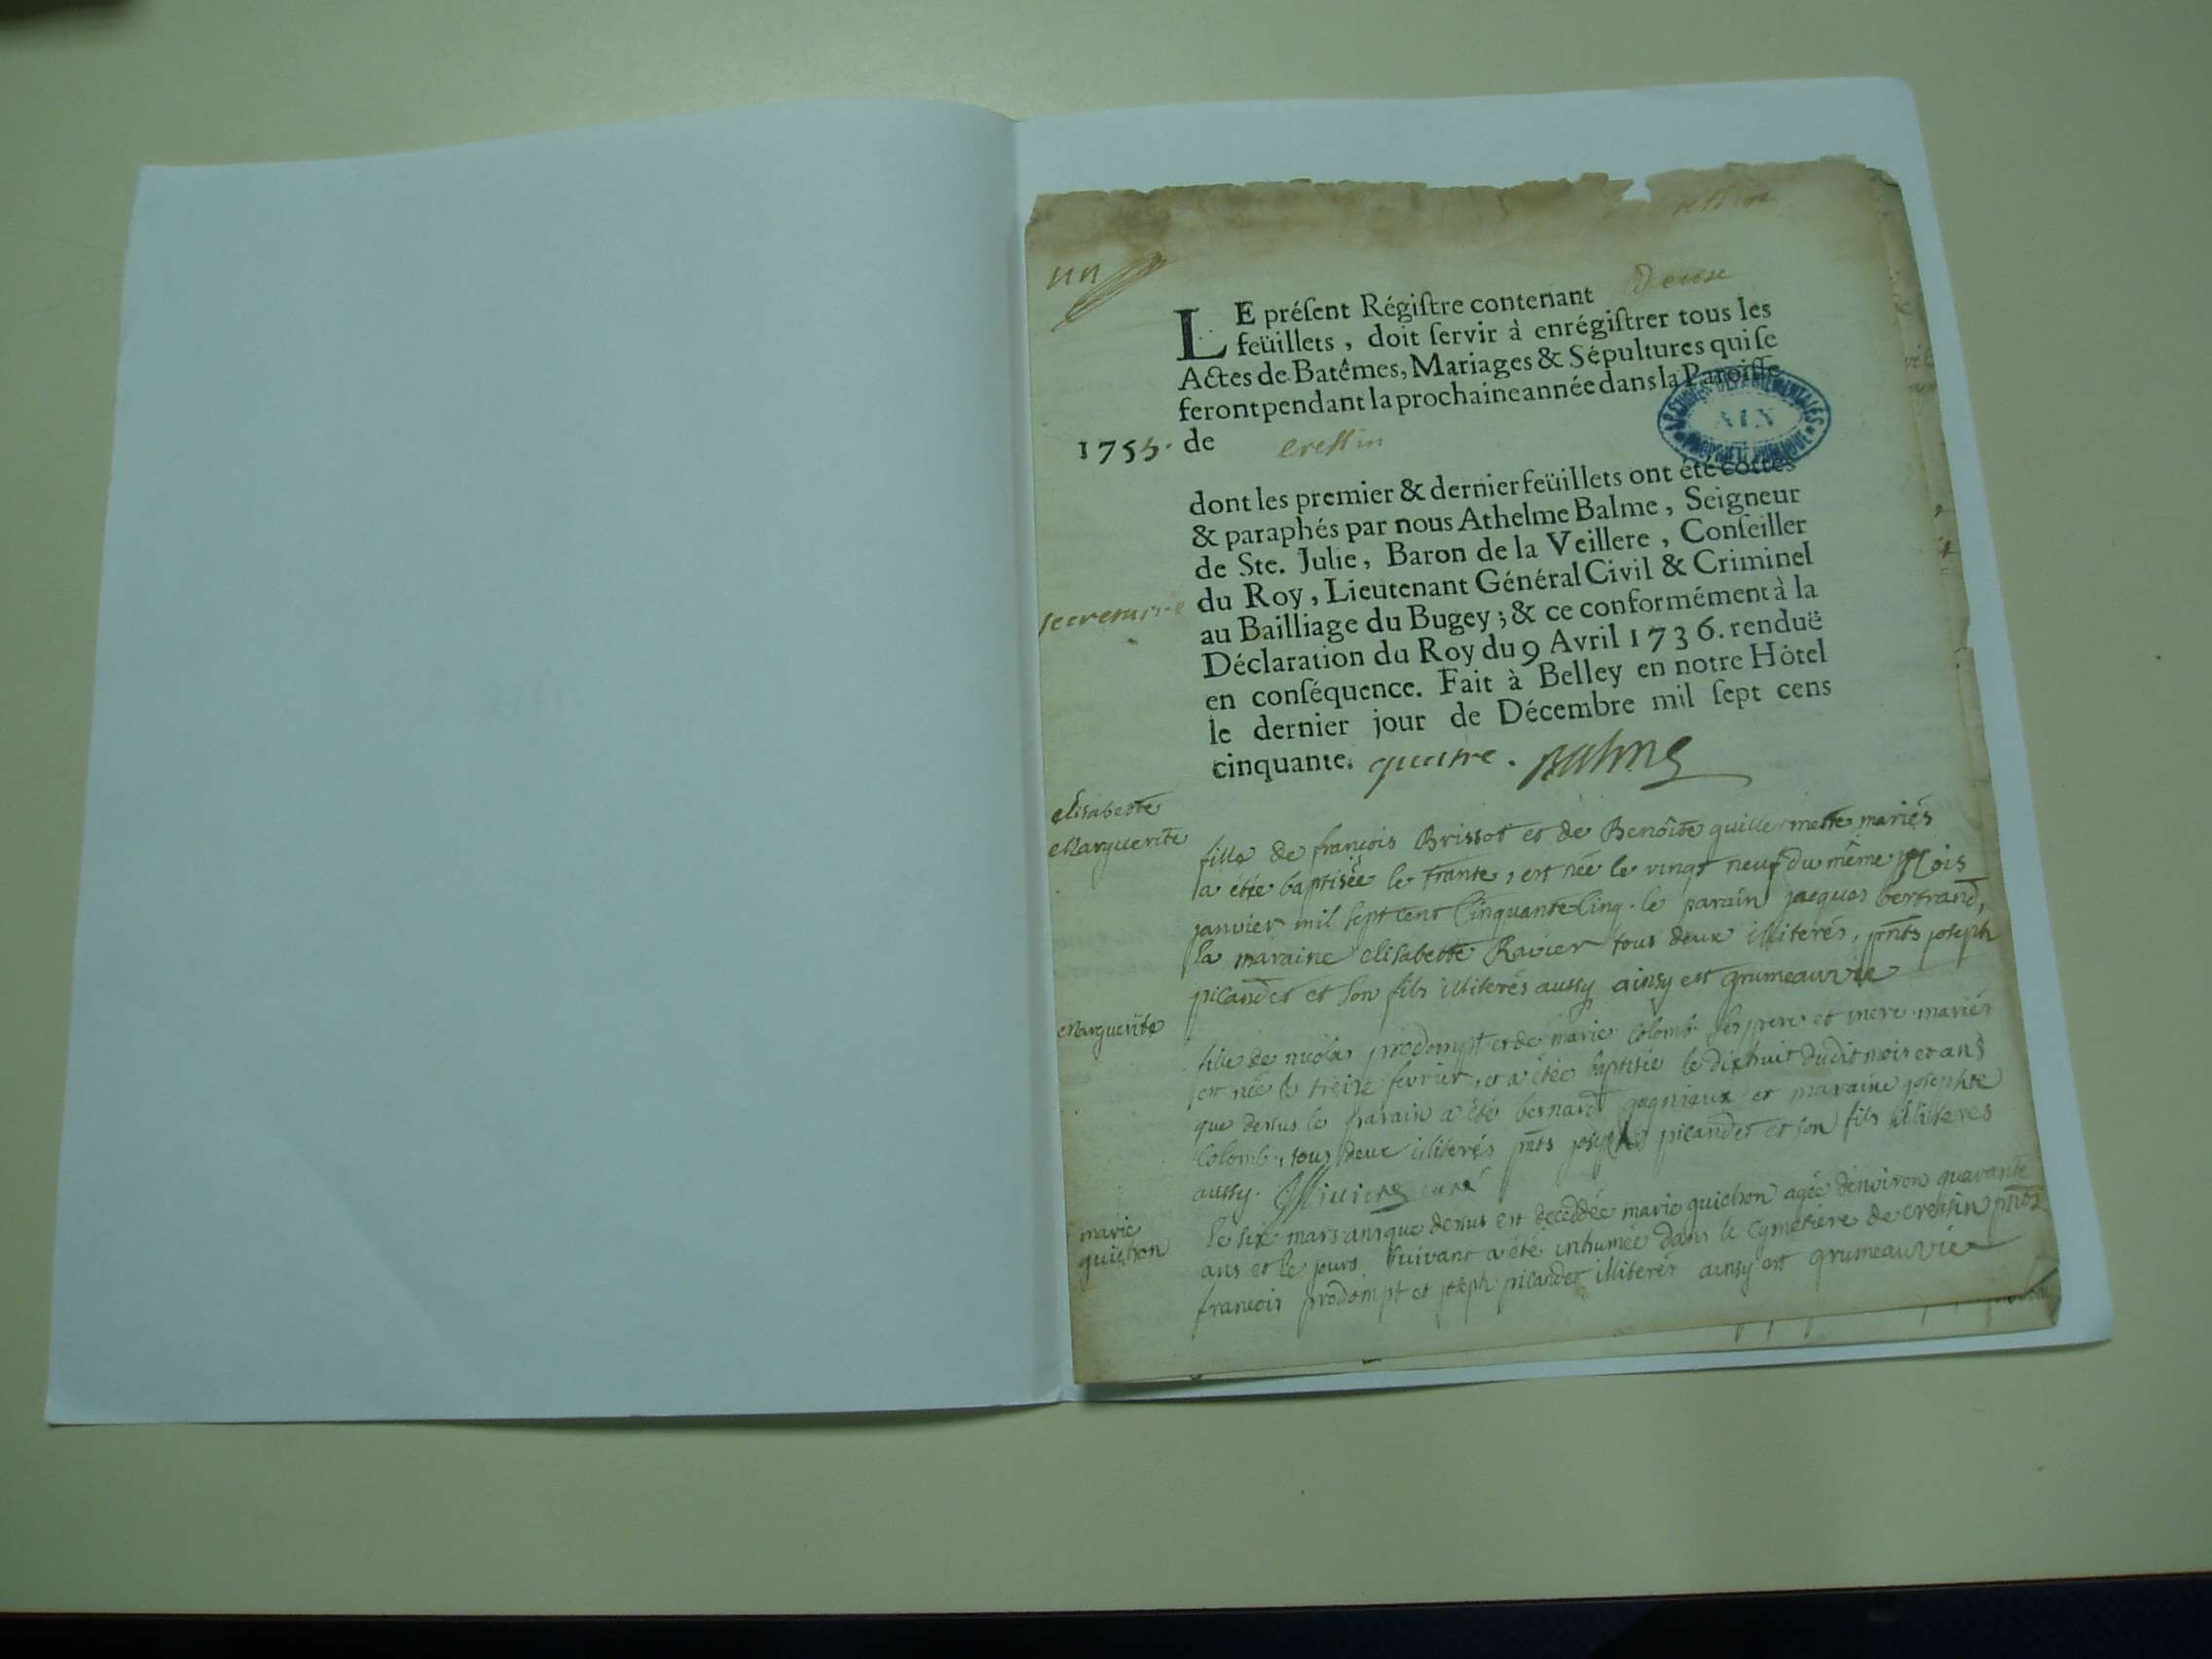 un
LE préſent Régiſtre contenant
feüillets, doit ſervir à enrégiſtrer tous les
Actes de Batêmes, Mariages & Sépultures qui ſe
feront pendant la prochaine année dans la Paroiſſe
1755. de cressin
ARCHIVES DEPARTEMENTALES
AIN
PROPRIÉTÉ PUBLIQUE
dont les premier & dernier feüillets ont été cottés
& paraphés par nous Athelme Balme, Seigneur
de Ste. Julie, Baron de la Veillere, Conſeiller
du Roy, Lieutenant Général Civil & Criminel
au Bailliage du Bugey; & ce conformément à la
Déclaration du Roy du 9 Avril 1736. renduë
en conſéquence. Fait à Belley en notre Hôtel
le dernier jour de Décembre mil ſept cens
cinquante. quatre. Balme
secretaire
elisabette
Marguerite
fille de francois Brissot et de Benoîte guillermette mariés
a étée baptisée le trante, est née le vingt neuf du même Mois
janvier mil sept cent Cinquante Cinq. le parain jacques bertrand,
la maraine elisabette Ravier tous deux illiterés, pnts joseph
picandet et son fils illiterés aussy ainsy est grumeauvie
Marguerite
fille de nicolas prodompt et de marie Colomb ses pere et mere mariés
est née le treize fevrier, et a étée baptisée le dixhuit dudit mois et ans
que dessus le parain a été bernard gagnieux et maraine josephte
Colomb, tous deux illiterés pnts joseph picandet et son fils illiteres
aussy. curé
marie
guichon
le six mars ans que dessus est decedée marie guichon agée denviron quarante
ans et le jours suivant a été inhumée dans le Cymetiere de cressin pnts
francois prodompt et joseph picandet illiterés ainsy est grumeauvie